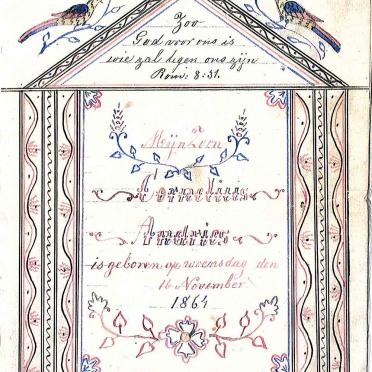 Zoo
God voor ons is
wie zal tegen ons zijn
Rom. 8:31.
Mijn Zoon
is geboren op woensdag den
16 November
1864